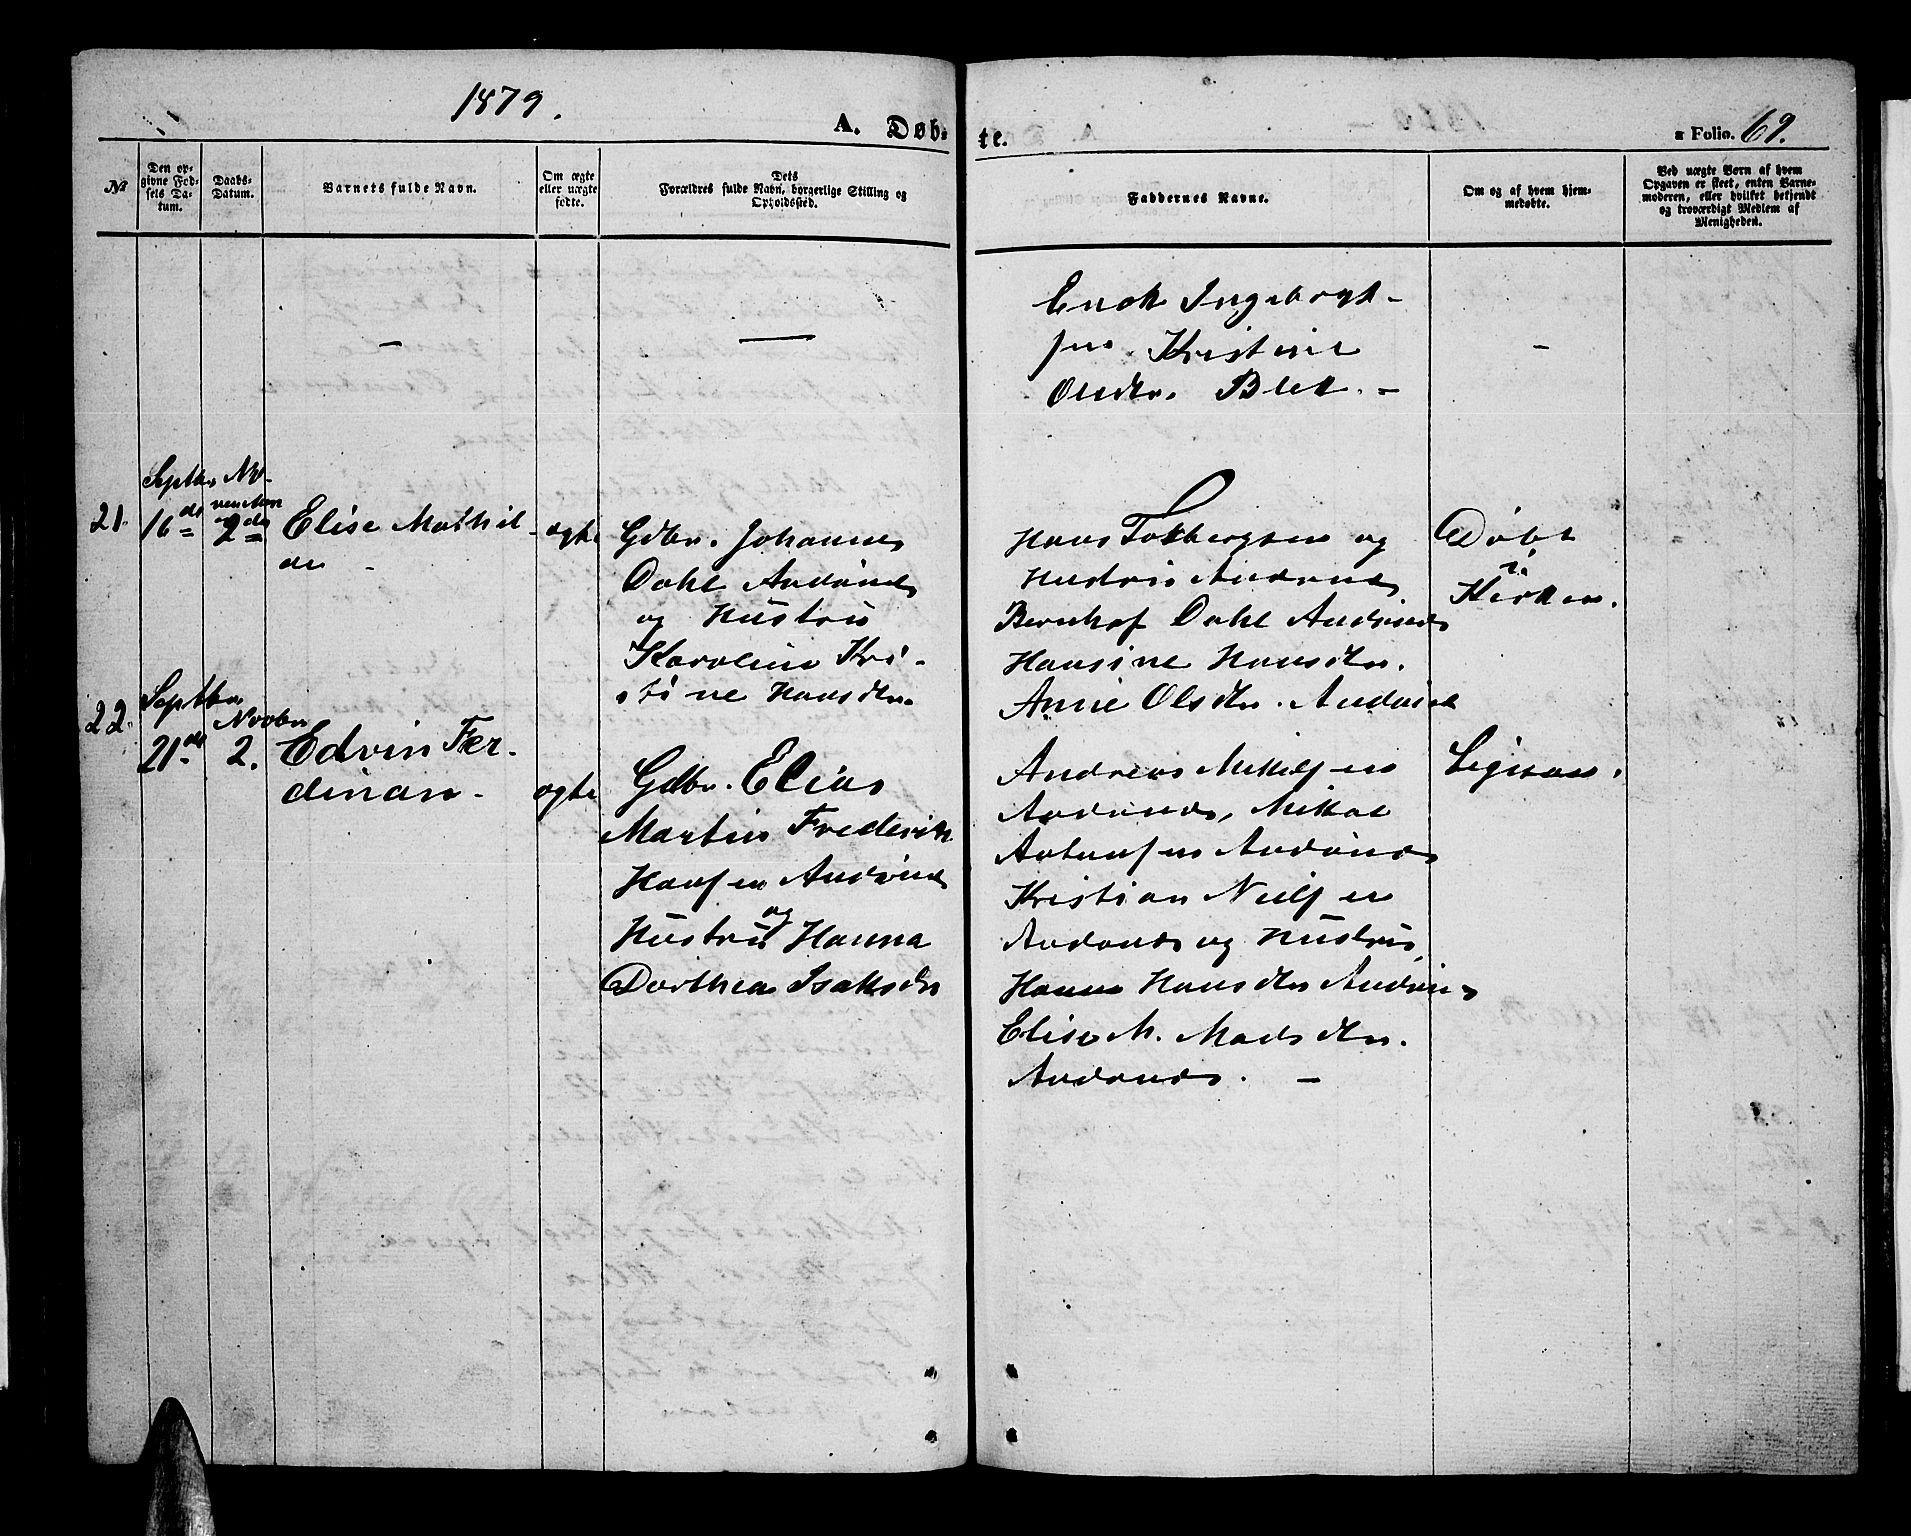 1879.
A. Døb-
te.
a Folio. 69.
№
Den op-
givne Fød-
sels Da-
tum.
Daabs-
Datum.
Barnets fulde Navn.
Om ægte
eller uægte
fødte.
Dets
Forældres fulde Navn, borgerlige Stilling og
Opholdssted.
Faddernes Navne.
Om og af hvem hjem-
medøbte.
Ved uægte Børn af hvem
Opgaven er skeet, enten Barne-
moderen, eller hvilket bekjendt
og troværdigt Medlem af
Menigheden.
—
—
Enok Ingebrigt-
sen Kristine
Olsdtr. Blek. -
—
21.
Septbr
16de
No-
vember
2den
Elise Mathil-
de -
ægte
Gdbr. Johannes
Dahl Andønes
og Hustru
Karoline Kri-
stine Hansdtr.
Hans Torbergsen og
Hustru Andønes
Bernhof Dahl Andønes
Hansine Hansdtr.
Anne Olsdtr. Andønes
Døbt
i
Kirken.
22.
Septbr
21de
Novbr
2.
Edvin Fer-
dinan -
ægte
Gdbr. Elias
Martin Frederik
Hansen Andønes
og
Hustru Hanna
Dorthea Isaksdtr
Andreas Mikkelsen
Andønes, Mikal
Antonsen Andønes
Kristian Nilsen
Andønes og Hustru
Hanna Hansdtr Andønes
Elise M. Madsdtr.
Andønes. —
Ligesaa.